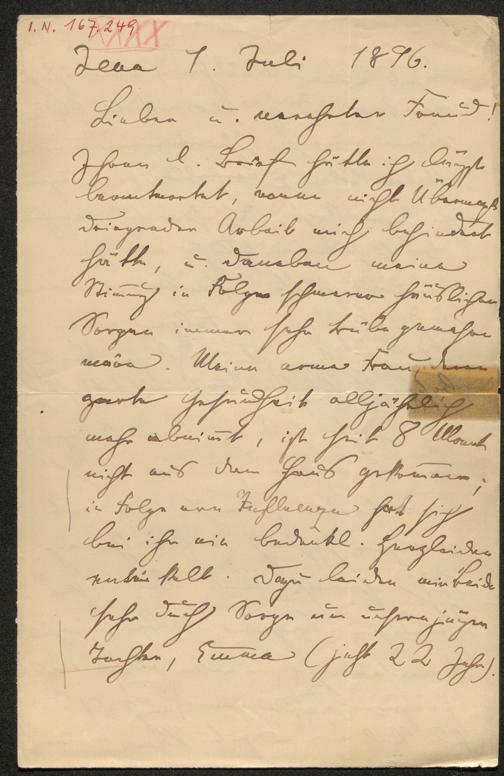 I. N. 167.249
XXXX
Jena 1. Juli 1896.
Lieber u. verehrter Freund!
Ihren l. Brief hätte ich längst
beantwortet, wenn nicht Übermaß
dringender Arbeit mich behindert
hätte, u. daneben meine
Stimmung in Folge schwerer häuslicher
Sorgen immer sehr trübe gewesen
wäre. Meine arme Frau, deren
zarte Gesundheit alljährlich
mehr abnimmt, ist seit 8 Monat
nicht aus dem Haus gekommen;
in Folge von Influenza hat sich
bei ihr ein bedenkl. Herzleiden
entwickelt. Dazu leiden wir beide
sehr durch Sorge um unsere jüngere
Tochter, Emma (jetzt 22 Jahr).